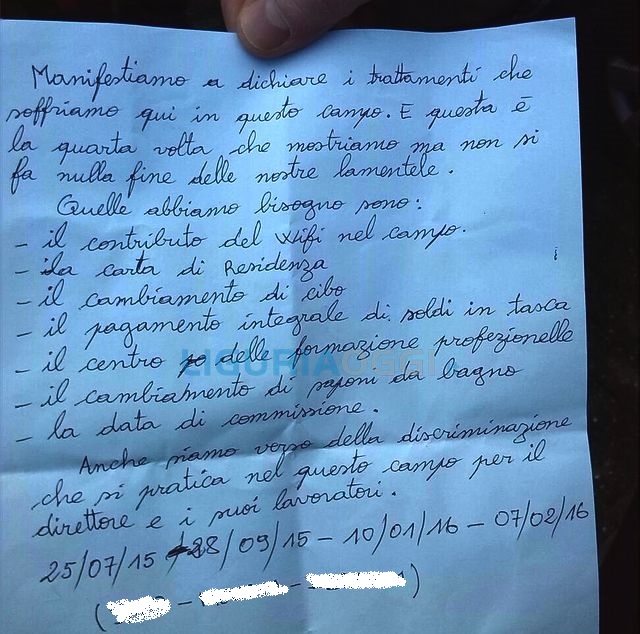 Manifestiamo a dichiare i trattamenti che
soffriamo qui in questo campo. E questa è
la quarta volta che mostriamo ma non si
fa nulla fine delle nostre lamentele.
Quelle abbiamo bisogno sono:
- il contributo del Wifi nel campo.
- la carta di Residenza
- il cambiamento di cibo
- il pagamento integrale di soldi in tasca
- il centro delle formazione profezionelle
- il cambiahmento di saponi da bagno
- la data di commissione.
Anche siamo verso della discriminazione
che si pratica nel questo campo per il
direttore e i suoi lavoratori.
25/07/15 / 28/09/15 - 10/01/16 - 07/02/16
( - - )
LIGURIAOGGI